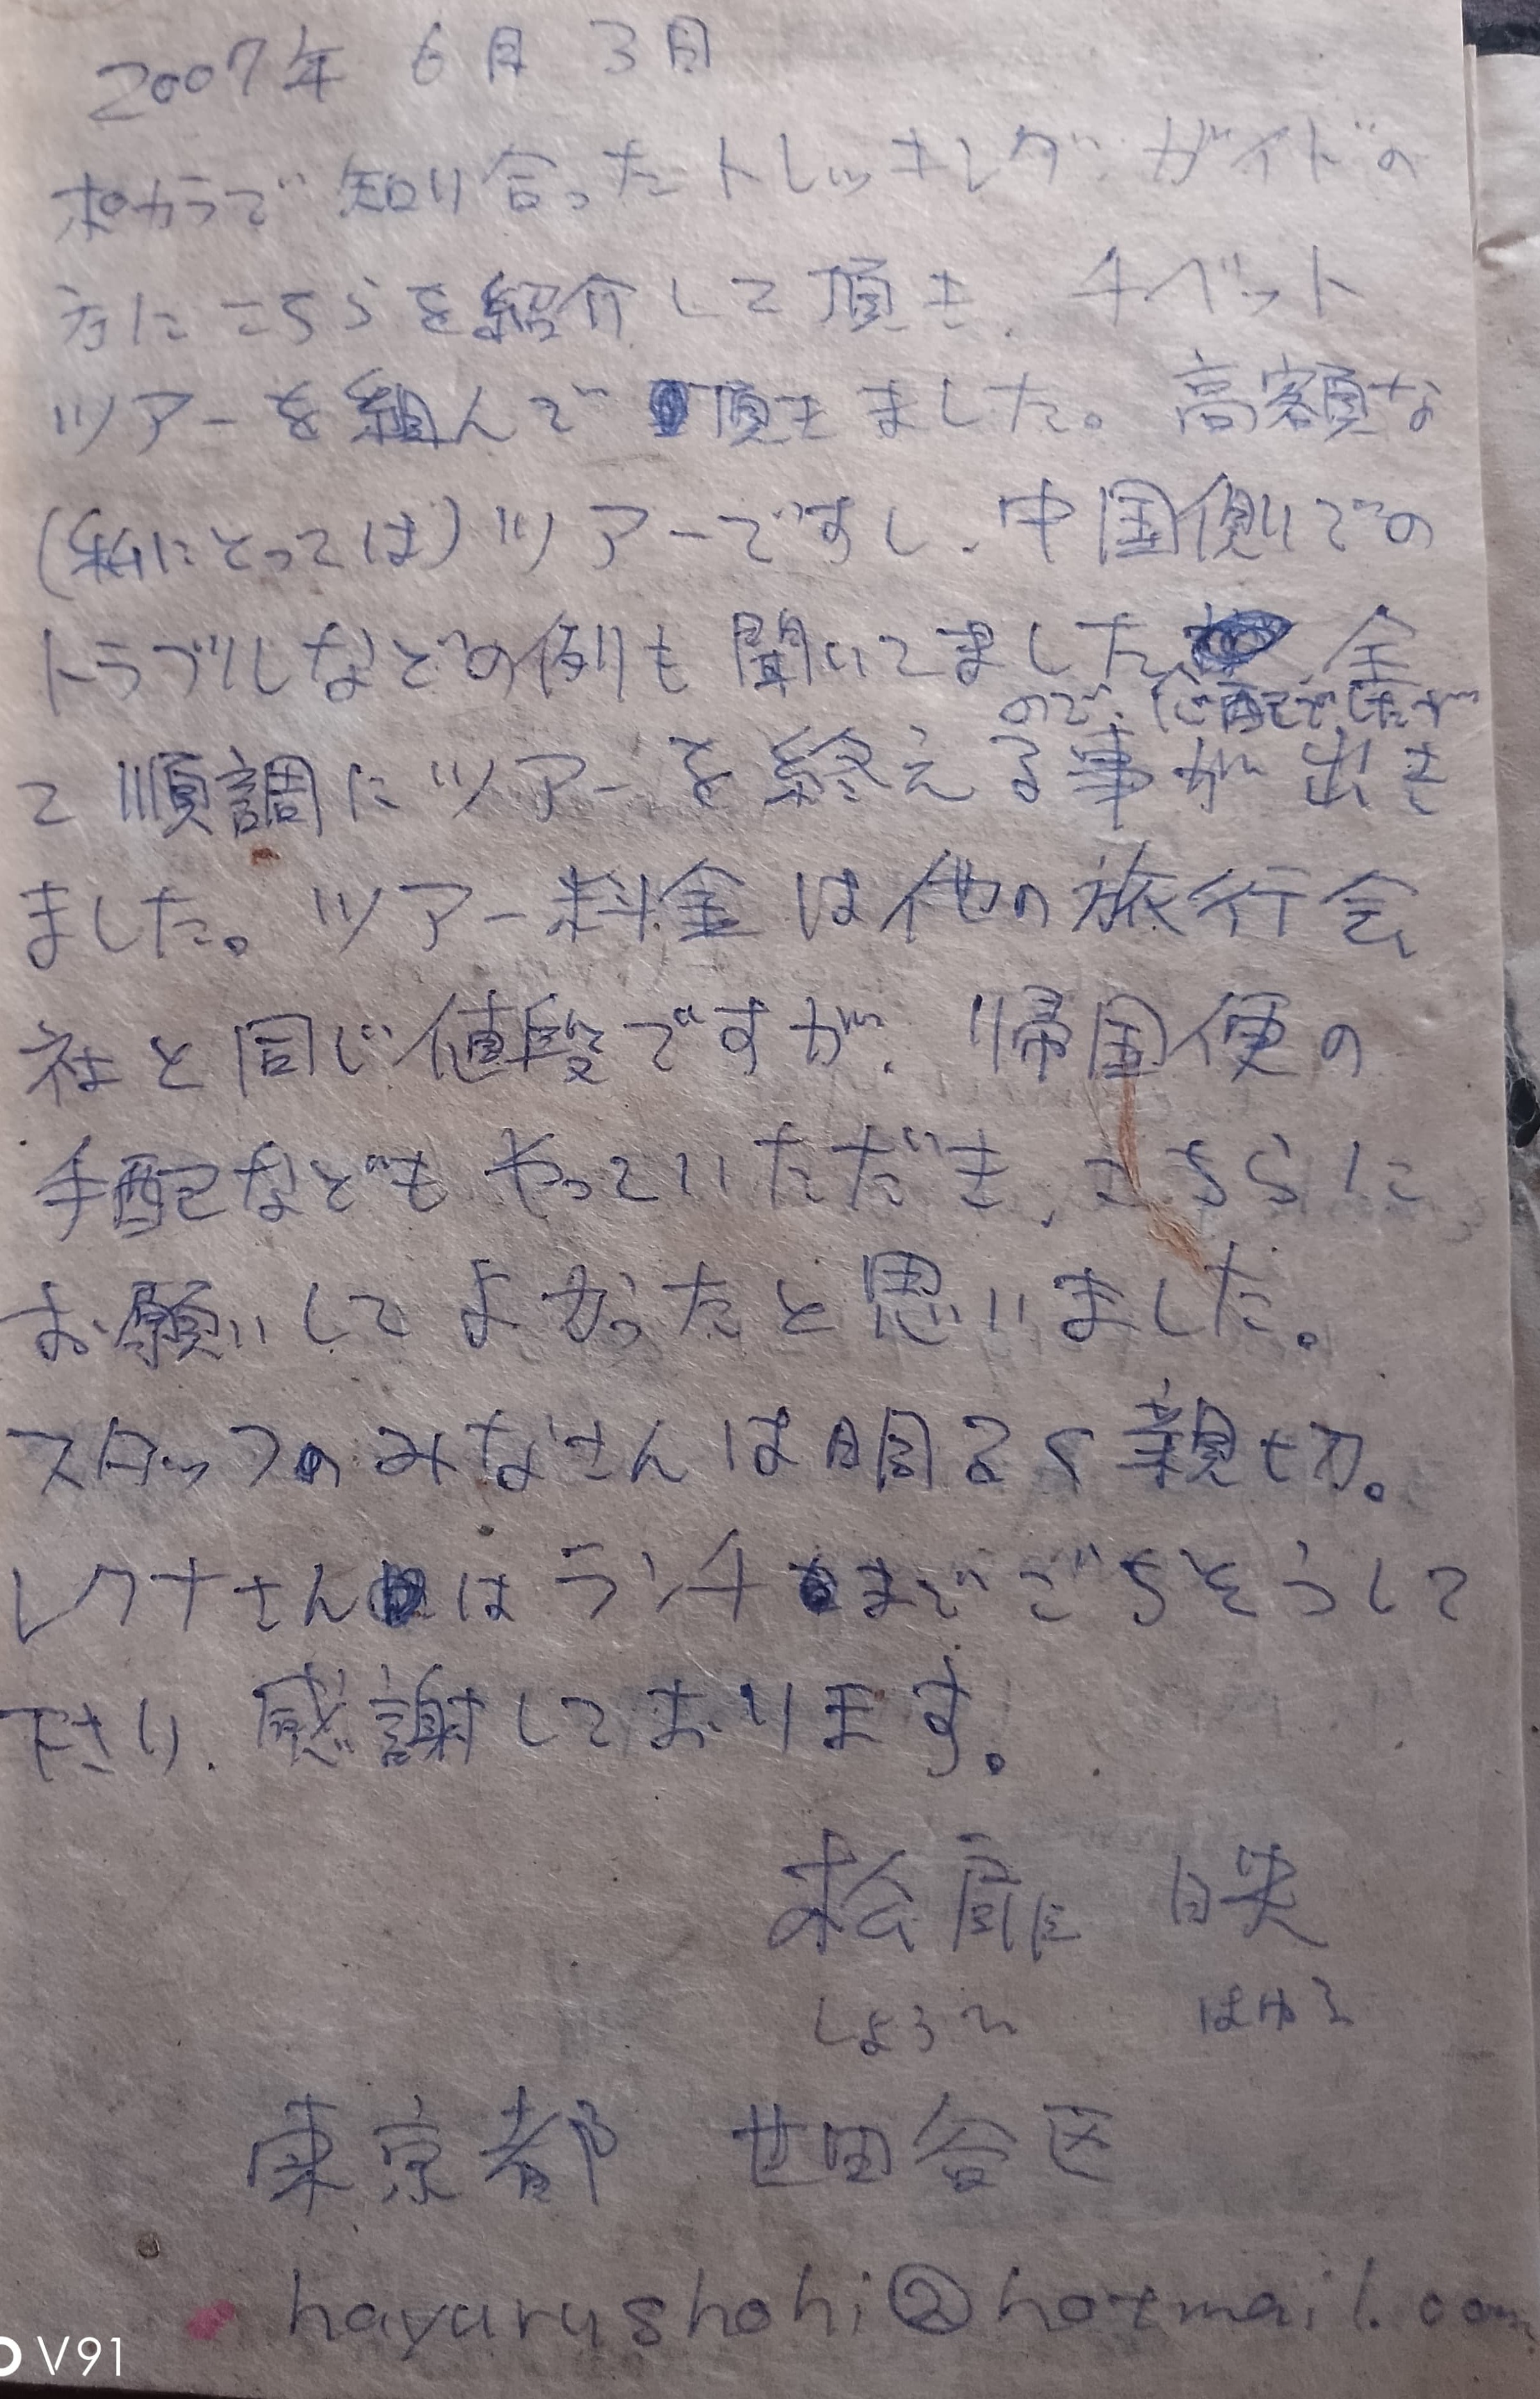 2007年 6月 3日
ポカラで知り合ったトレッキングガイドの
方にこちらを紹介して頂き、チベット
ツアーを組んで頂きました。高額な
(私にとっては)ツアーですし、中国側での
トラブルなどの例も聞いてました 全
ので、心配でしたが
て順調にツアーを終える事が出き
ました。ツアー料金は他の旅行会
社と同じ値段ですが、帰国便の
手配などもやっていただき、こちらに
お願いしてよかったと思いました。
スタッフのみなさんは明るく親切。
レクナさんはランチまでごちそうして
下さり、感謝しております。
松扉 映
しょうひ はゆる
東京都 世田谷区
hayurushohi@hotmail.com
V91